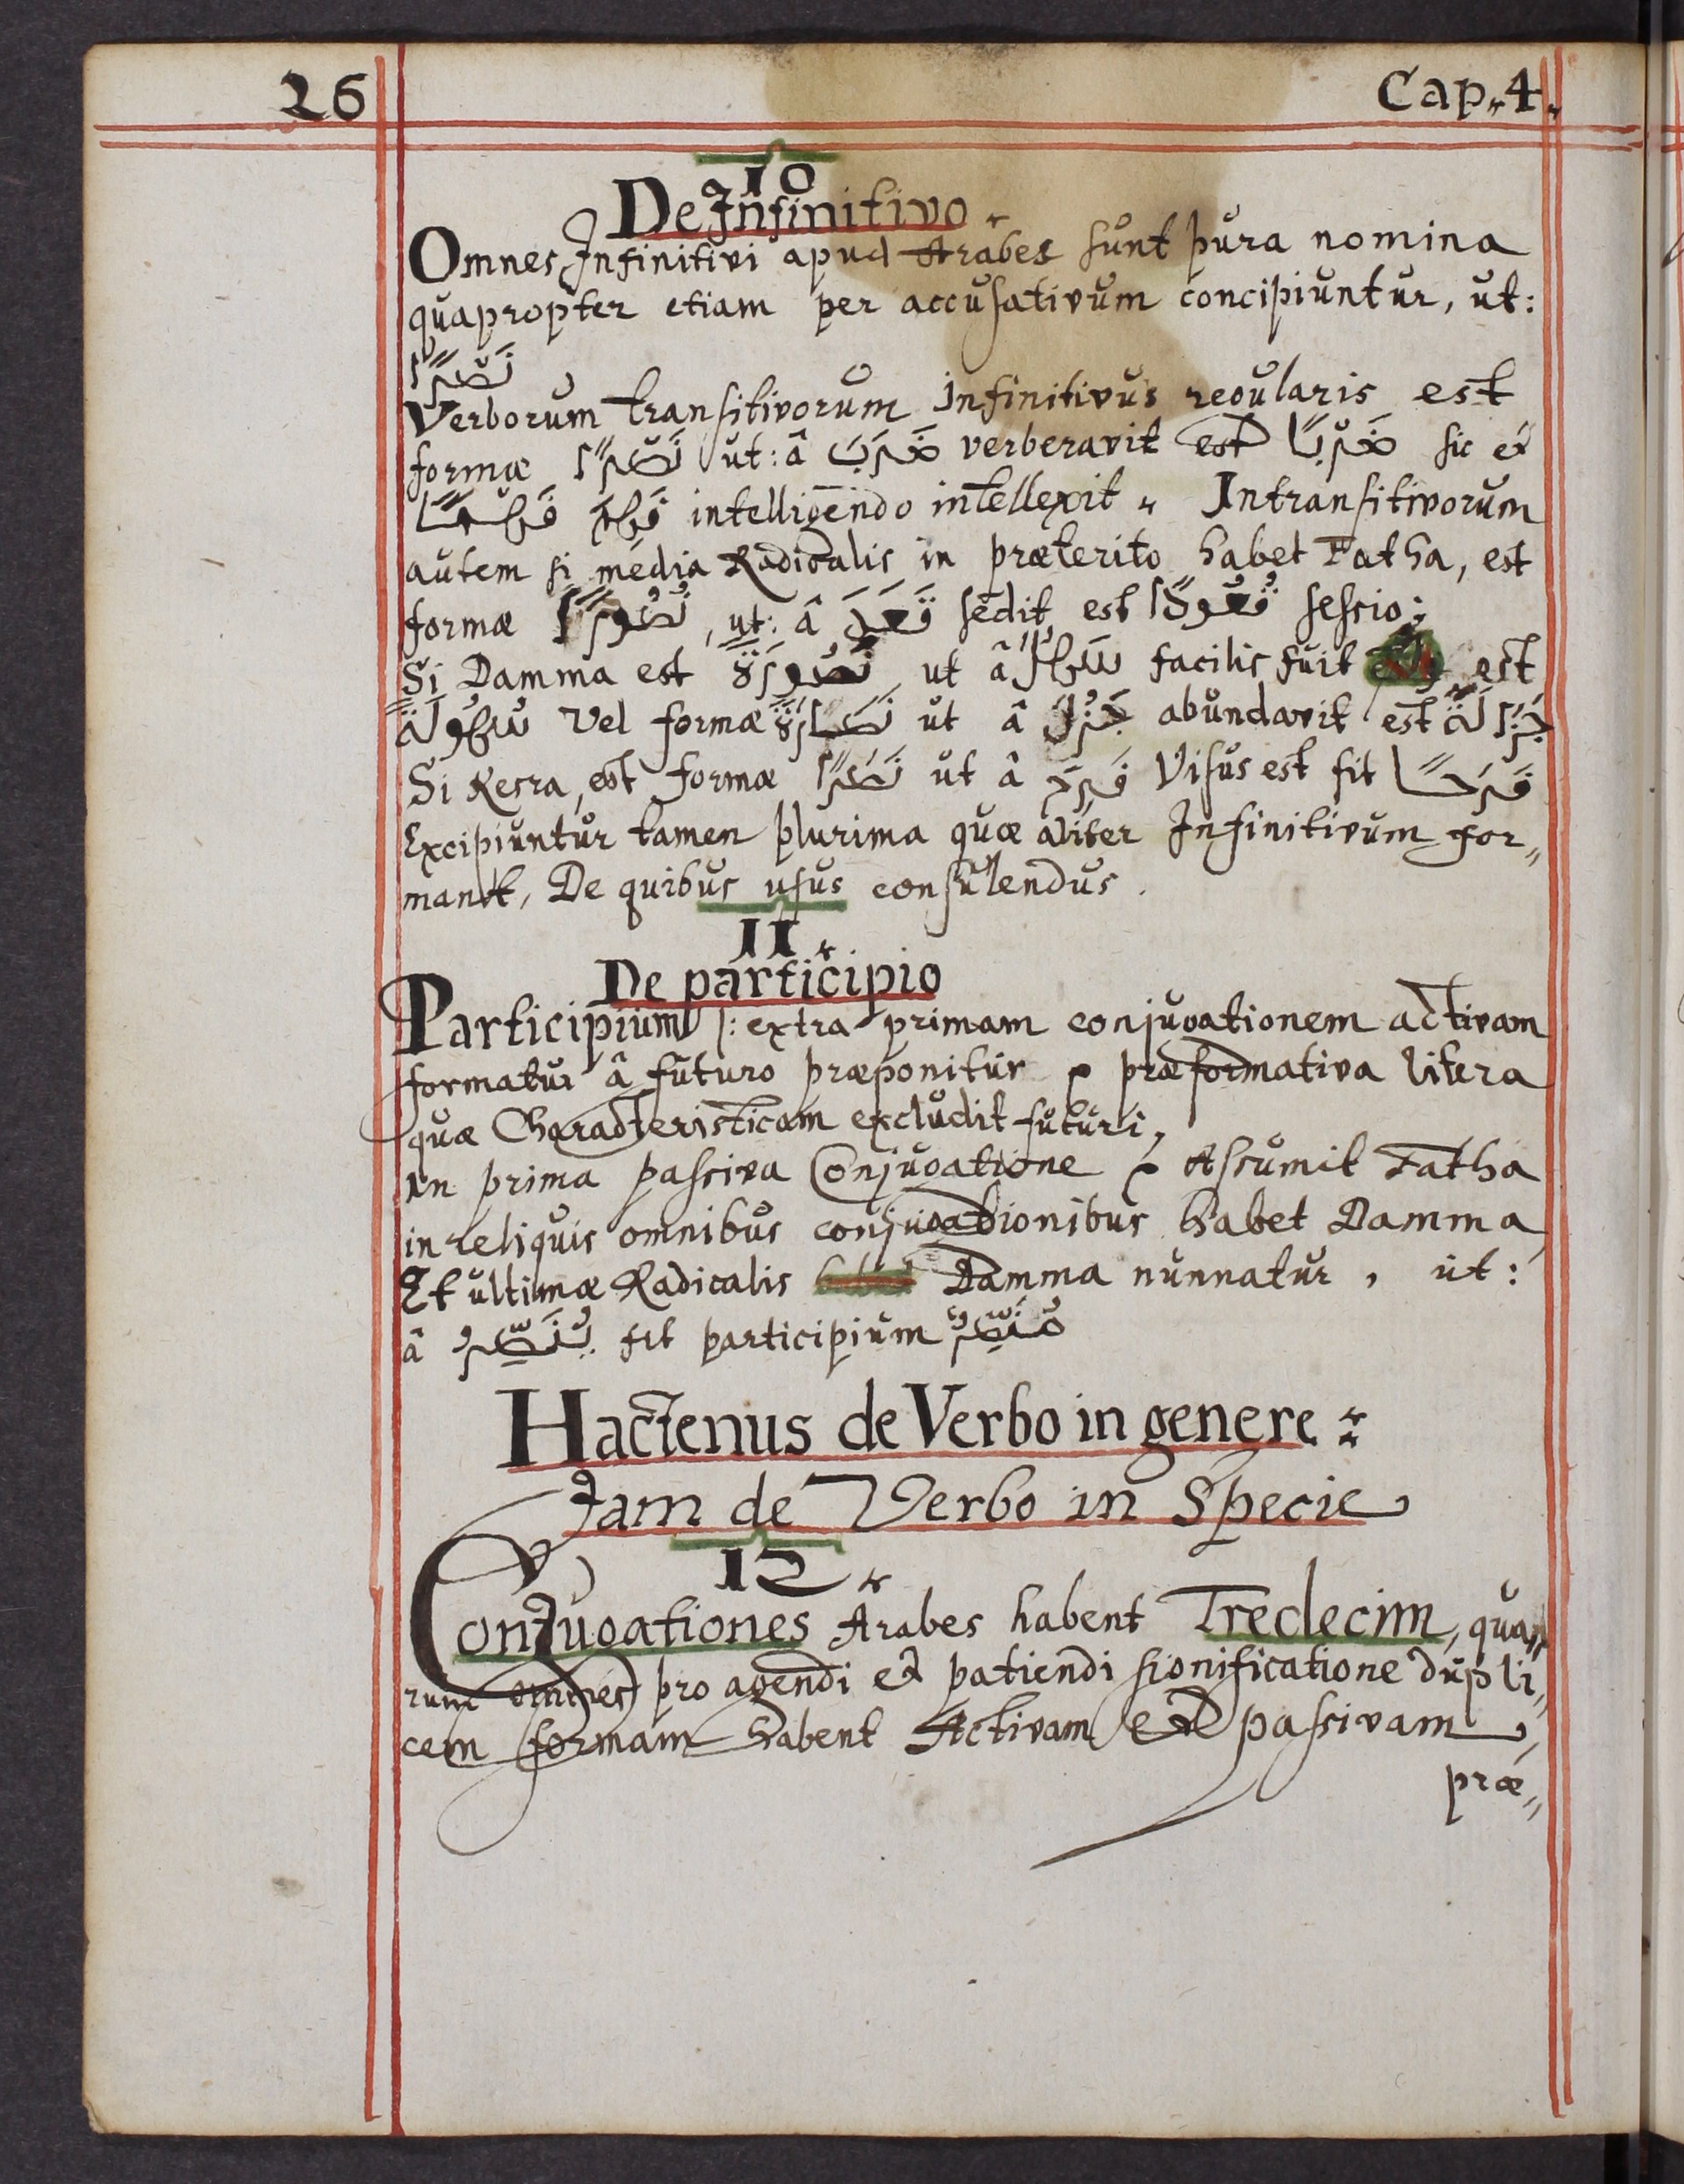 26
Cap. 4.
10
De Infinitivo.
Omnes Infinitivi apud Arabes sunt pura nomina
quapropter etiam per accusativum concipiuntur, ut:
نَصْرًا
Verborum transitivorum Infinitivus regularis est
formæ نَصْرًا ut: â ضَرَبَ verberavit est ضَرْبًا sic et
فَهْمًا فَهِمَ intelligendo intellexit. Intransitivorum
autem si media Radicalis in præterito habet Fatha, est
formæ نُصُورًا, ut: â قَعَدَ sedit est قُعُودًا sessio;
Si Damma est نُصُورَةً ut â سَهُلَ facilis fuit est
سُهُولَةً vel formæ نَصَارَةً ut â جَزُلَ abundavit est جَزَالَةً
Si Kesra, est formæ نَصَرًا ut â فَرِحَ Visus est fit فَرَحًا
Excipiuntur tamen plurima quæ aliter Infinitivum for„
mant, De quibus usus consulendus.
11.
De participio
Participium |: extra primam conjugationem activam
formatur â futuro præponitur م præformativa litera
quæ Characteristicam excludit futuri,
In prima passiva Conjugatione م Assumit Fatha
in reliquis omnibus conjugationibus habet Damma,
Et ultimæ Radicalis Damma nunnatur, ut:
â يُنَصِّرُ fit participium مُنَصِّرٌ
Hactenus de Verbo in genere:
Jam de Verbo in Specie
12.
Conjugationes Arabes habent Tredecim, qua„
rum omnes pro agendi et patiendi significatione dupli„
cem formam habent Activam et passivam,
præ„